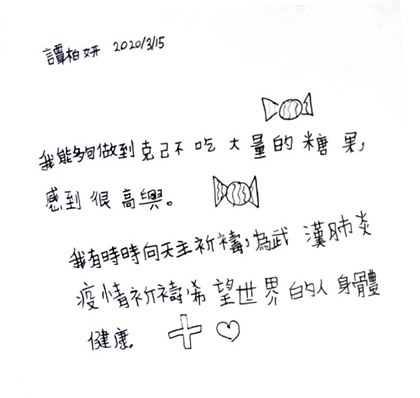 譚柏妍 2020/3/15
我能夠做到克己不吃大量的糖果,
感到很高興。
我有時時向天主祈禱,為武漢肺炎
疫情祈禱,希望世界的人身體
健康。